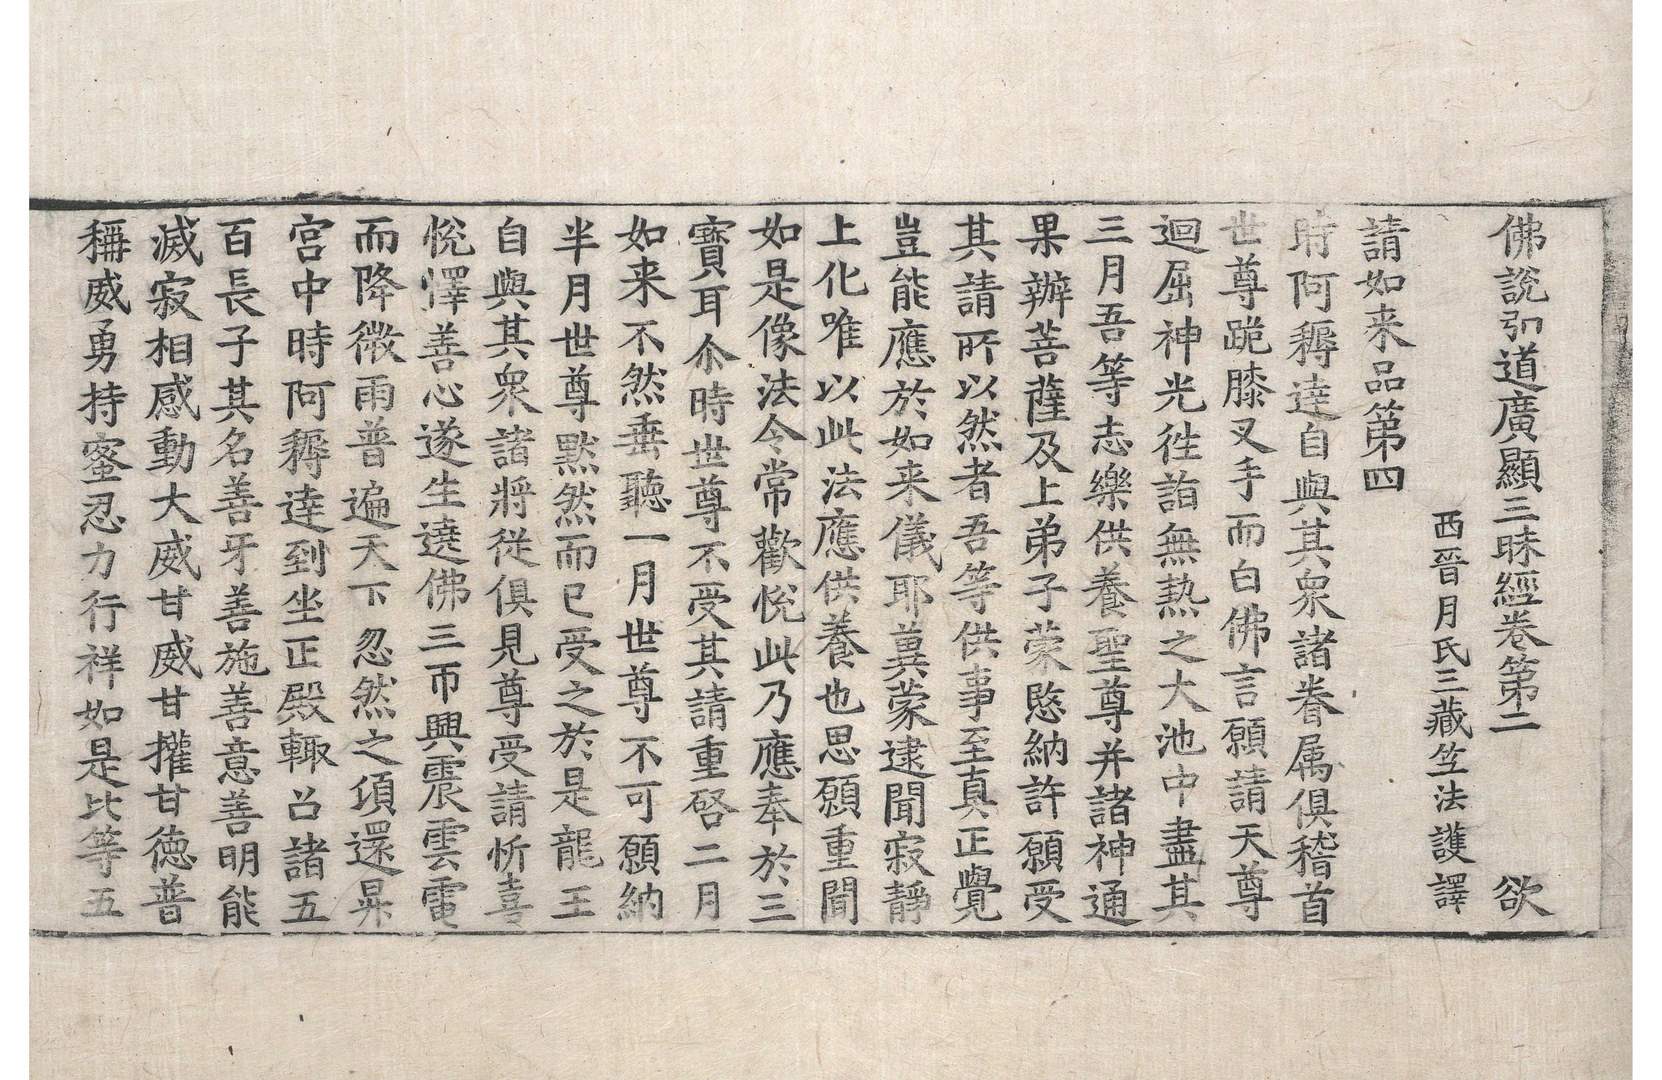 佛說弘道廣顯三昧經卷第二 欲
西晉月氏三藏竺法護譯
請如来品第四
時阿耨達自與其衆諸眷属俱稽首
世尊跪膝叉手而白佛言願請天尊
迴屈神光徃詣無熱之大池中盡其
三月吾等志樂供養聖尊并諸神通
果辦菩薩及上弟子蒙愍納許願受
其請所以然者吾等供事至真正覺
豈能應於如来儀耶冀蒙逮聞寂靜
上化唯以此法應供養也思願重聞
如是像法令常歡悅此乃應奉於三
寶耳尒時世尊不受其請重啓二月
如来不然垂聽一月世尊不可願納
半月世尊默然而已受之於是龍王
自與其衆諸將從俱見尊受請忻喜
悅懌善心遂生遶佛三帀興震雲電
而降微雨普遍天下忽然之湏還昇
宮中時阿耨達到坐正殿輙召諸五
百長子其名善牙善施善意善明能
滅寂相感動大威甘威甘權甘德普
稱威勇持蜜忍力行祥如是比等五